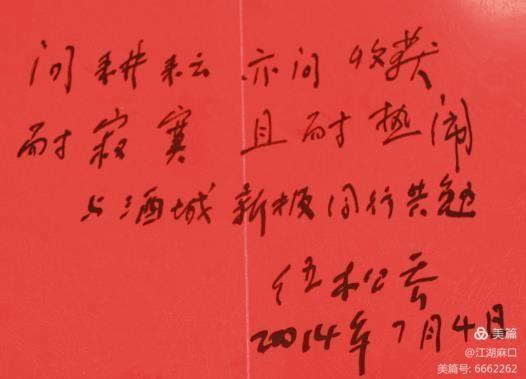 问耕耘 亦问收获
耐寂寞 且耐热闹
与酒城新报同行共勉
伍松乔
2014年7月4日
美篇
@江湖麻口
美篇号: 6662262